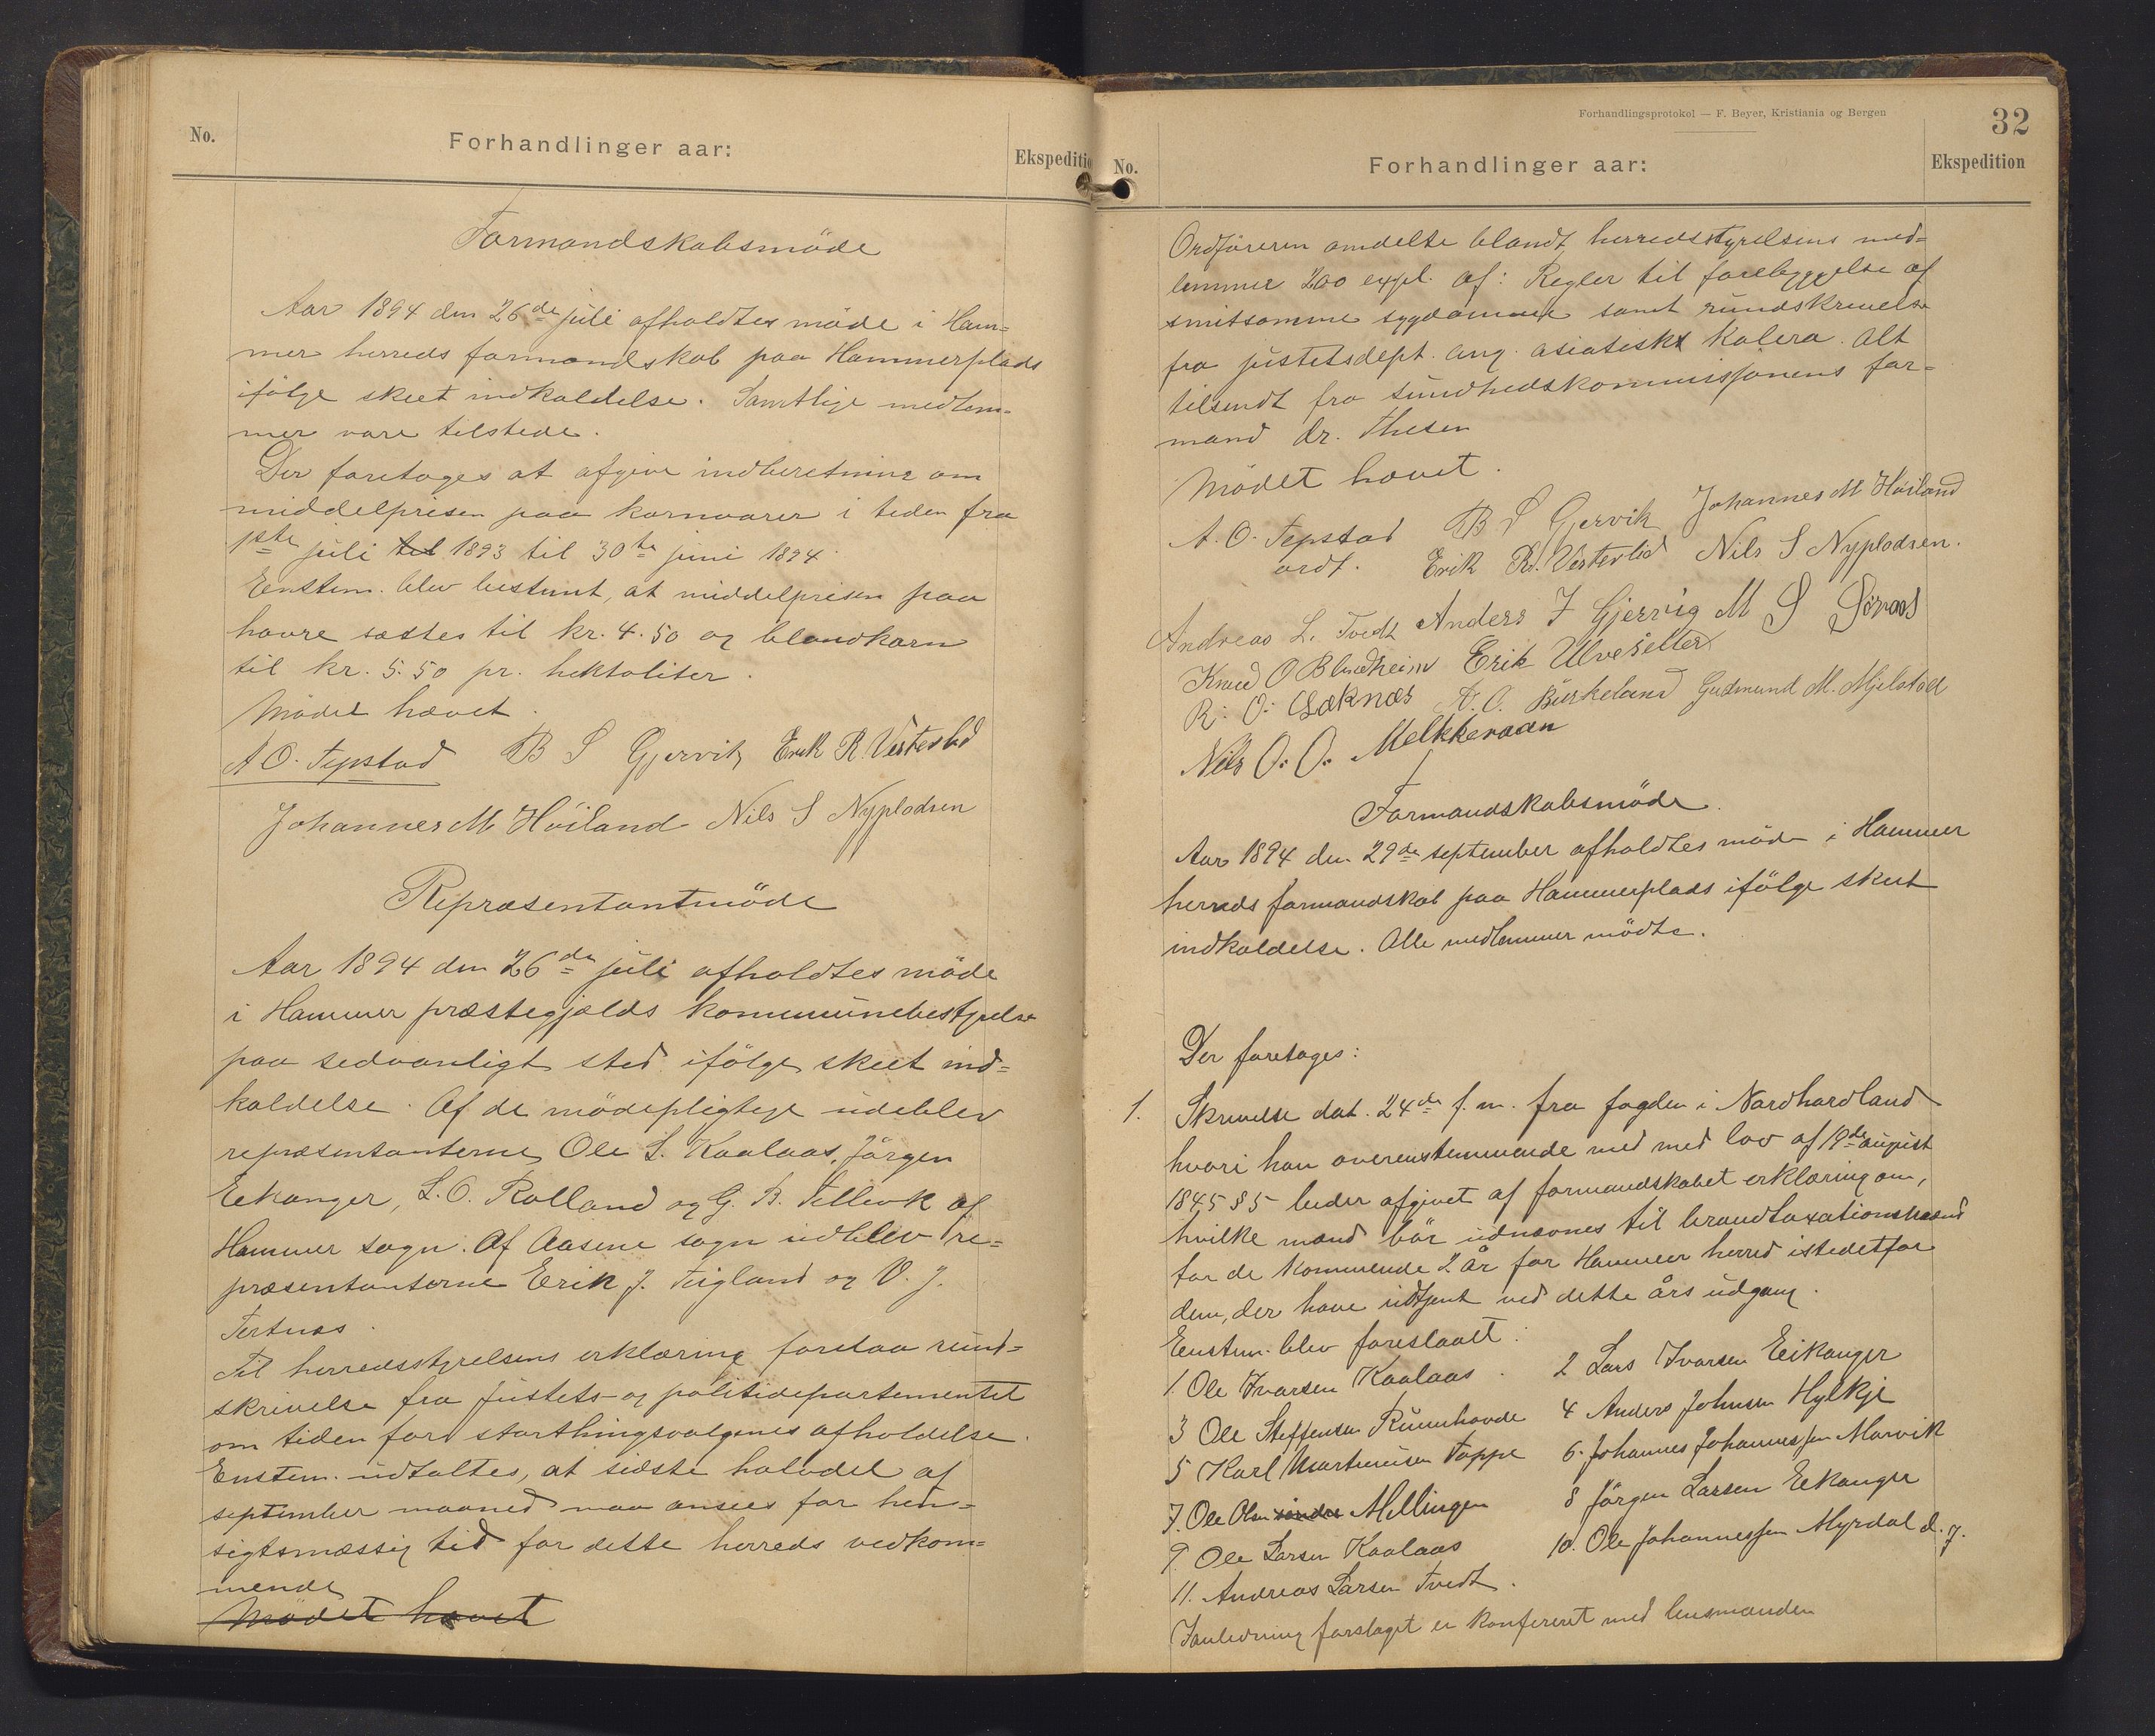 No.
Forhandlinger aar:
Ekspeditio
Formandskabsmöde
Aar 1894 den 26de juli afholdtes möde i Ham=
mer herreds formandskab paa Hammerplads
ifölge skeet indkaldelse. Samtlige medlem=
mer vare tilstede.
Der foretoges at afgive indberetning om
middelprisen paa kornvarer i tiden fra
1ste juli til 1893 til 30te juni 1894.
Enstem. blev bestemt, at middelprisen paa
havre sættes til kr. 4.50 og blandkorn
til kr. 5.50 pr. hektoliter.
Mödet hævet.
A O. Tepstad B S Gjervik Erik R. Vesterlid
Johannes M Höiland Nils S Nyplodsen
Repræsentantmöde
Aar 1894 den 26de juli afholdtes möde
i Hammer præstegjælds kommunebestyrelse
paa sedvanligt sted ifölge skeet ind=
kaldelse. Af de mödepligtige udeblev
repræsentanterne Ole L. Kaalaas, Jörgen
Eekanger, L. O. Rolland og G. B. Tellevik af
Hammer sogn. Af Aasene sogn udeblev re=
præsentanterne Erik J. Teigland og O. J.
Tertnæs.
Til herredsstyrelsens erklæring forelaa rund=
skrivelse fra Justets- og politidepartementet
om tiden for storthingsvalgenes afholdelse.
Enstem. udtaltes, at sidste halvdel af
september maaned maa ansees for hen=
sigtsmæssig tid for dette herreds vedkom=
mende
Mödet hævet
Forhandlingsprotokol — F. Beyer, Kristiania og Bergen
32
No.
Forhandlinger aar:
Ekspedition
Ordföreren omdelte blandt herredsstyrelsens med=
lemmer 200 expl. af: Regler til forebyggelse af
smitsomme sygdomme samt rundskrivelse
fra justetsdept. ang. asiatisk kolera. Alt
tilsendt fra sundhedskommissjonens for=
mand dr. Thesen
Mödet hævet.
A. O. Tepstad B S Gjervik Johannes M Höiland
ordf. Erik R. Vesterlid Nils S Nyplodsen.
Andreas L. Tvedt Anders J Gjervig M S
Knud O Blindheim Erik Ulvesetter
R. O. Læknæs A. O. Birkeland Gudmund M. Mjelstad
Nils O. O. Melkkeraaen
Formandskabsmöde.
Aar 1894 den 29de september afholdtes möde i Hammer
herreds formandskab paa Hammerplads ifölge skeet
indkaldelse. Alle medlemmer mödte.
Der foretoges:
1. Skrivelse dat. 24de f. m. fra fogden i Nordhordland
hvori han overenstemmende med med lov af 19de august
1845 § 5 beder afgivet af formandskabet erklæring om,
hvilke mænd bör udnævnes til brandtaxationsmænd
for de kommende 2 år for Hammer herred istedetfor
dem, der have udtjent ved dette års udgang.
Enstem. blev foreslaaet:
1. Ole Ivarsen Kaalaas. 2 Lars Ivarsen Eikanger
3 Ole Steffensen Runnhovde 4 Anders Johnsen Hylkje
5 Karl Martinusen Toppe 6. Johannes Johannessen Morvik
7. Ole Olsen Mellingen 8 Jörgen Larsen Eekanger
9. Ole Larsen Kaalaas 10. Ole Johannessen Myrdal d. y.
11. Andreas Larsen Tvedt.
I anledning forslaget er konfereret med lensmanden